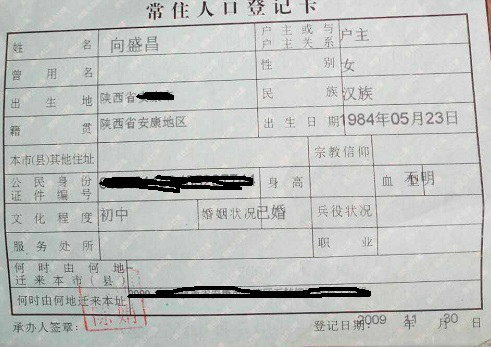 常住人口登记卡
姓名 向盛昌 户主或与户主关系 户主
曾用名 性别 女
出生地 陕西省安 民族 汉族
籍贯 陕西省安康地区 出生日期 1984年05月23日
本市(县)其他住址 宗教信仰
公民身份证件编号 身高 血型 不明
文化程度 初中 婚姻状况 已婚 兵役状况
服务处所 职业
何时由何地迁来本市(县)
何时由何地迁来本址
承办人签章: 登记日期: 2009年11月30日